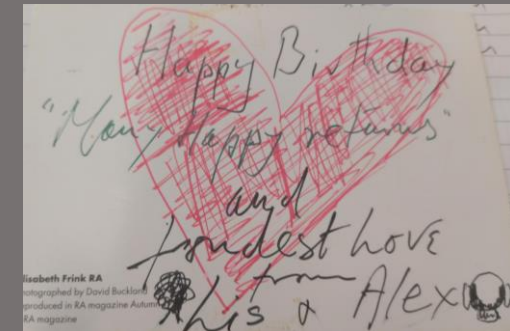 Happy Birthday
"Many Happy returns"
and
fondest Love
from
& Alex
lisabeth Frink RA
hotographed by David Buckland
eproduced in RA magazine Autumn
RA magazine